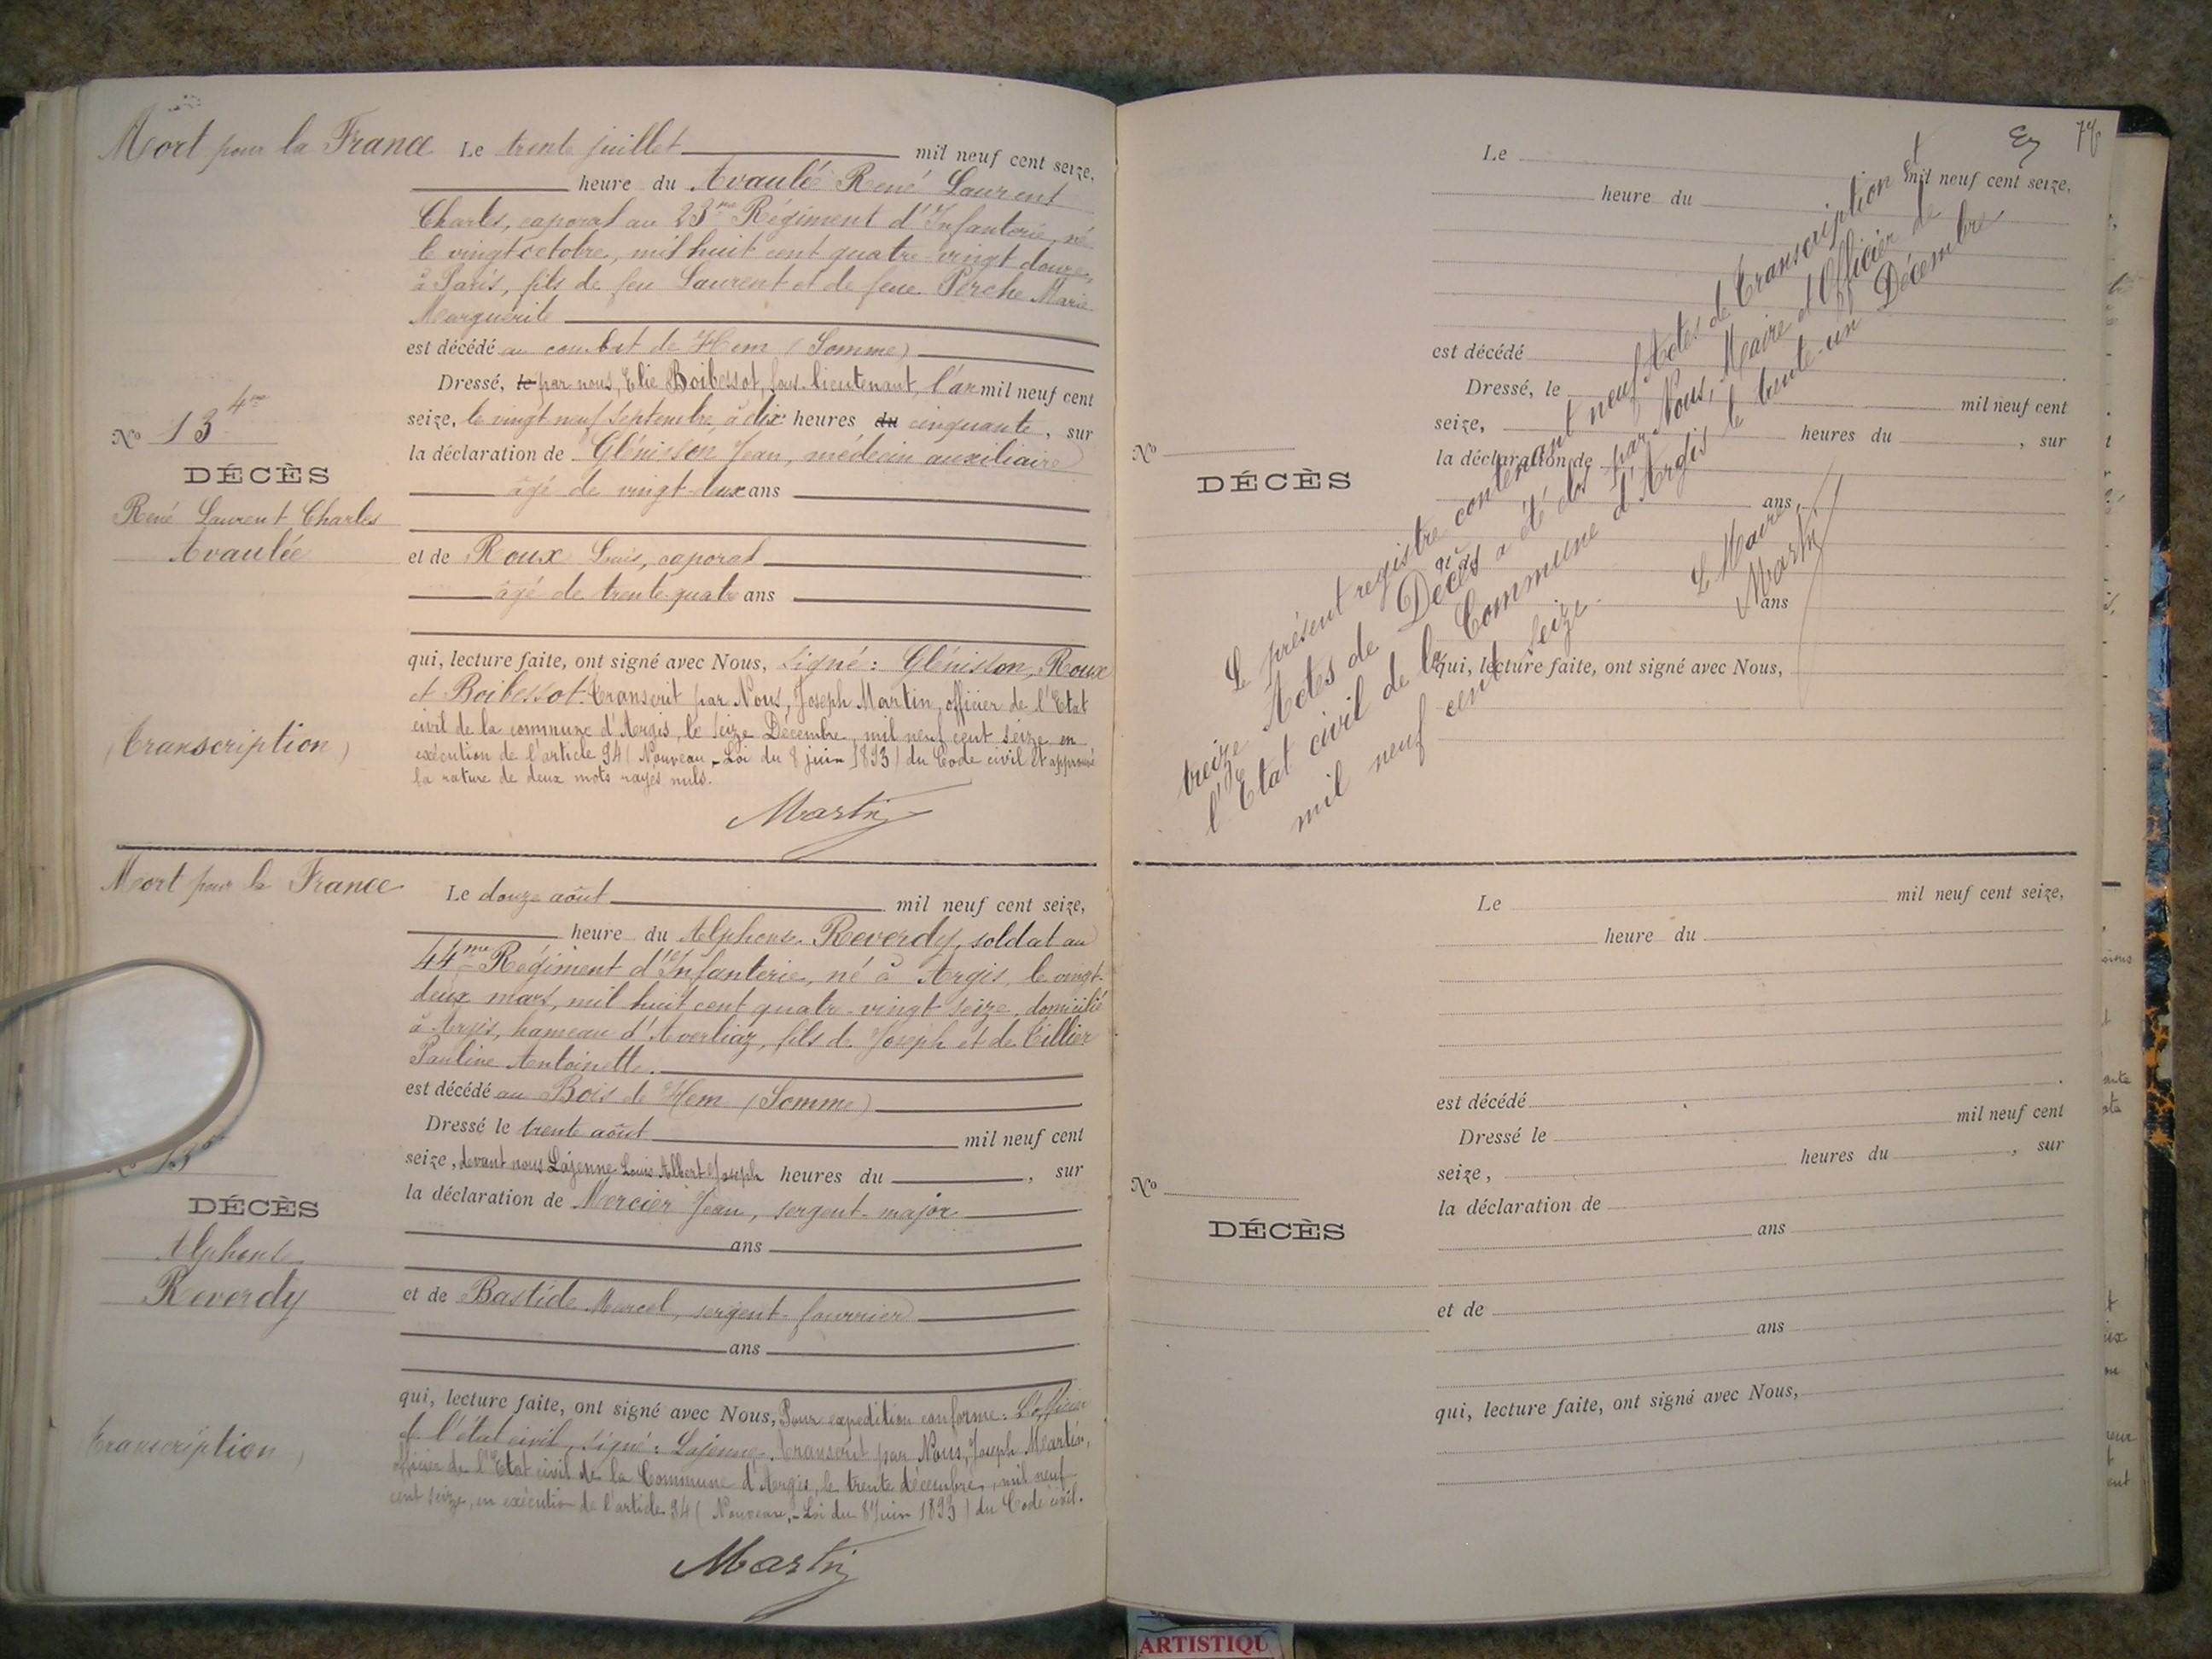 Mort pour la France
Le trente juillet mil neuf cent seize,
heure du Avaulée René Laurent
Charles, caporal au 23me Régiment d'Infanterie, né
le vingt octobre, mil huit cent quatre-vingt douze,
à Paris, fils de feu Laurent et de feue Perche Marie
Marguerite
est décédé au combat de Hem (Somme)
Dressé, le par nous, Elie Boibessot, sous-lieutenant, l'an mil neuf cent
seize, le vingt neuf Septembre, à dix heures du cinquante, sur
la déclaration de Glénisson Jean, médecin auxiliaire
âgé de vingt-deux ans
et de Roux Louis, caporal
âgé de trente-quatre ans
qui, lecture faite, ont signé avec Nous, signé: Glénisson, Roux
et Boibessot. Transcrit par Nous, Joseph Martin, officier de l'Etat
civil de la commune d'Argis, le seize Décembre, mil neuf cent seize, en
exécution de l'article 94 (Nouveau - Loi du 8 juin 1893) du Code civil Et approuvé
la rature de deux mots rayés nuls.
Martin
No 13 4me
DÉCÈS
René Laurent Charles
Avaulée
(Transcription)
Mort pour la France
Le douze août mil neuf cent seize,
heure du Alphonse Reverdy, soldat au
44me Régiment d'Infanterie, né à Argis, le vingt-
deux mars, mil huit cent quatre-vingt seize, domicilié
à Argis, hameau d'Averliaz, fils de Joseph et de Tillier
Pauline Antoinette.
est décédé au Bois de Hem (Somme)
Dressé le trente août mil neuf cent
seize, devant nous Lajenne Louis Albert Joseph heures du , sur
la déclaration de Mercier Jean, sergent-major
ans
et de Bastide Marcel, sergent-fourrier
ans
qui, lecture faite, ont signé avec Nous, Pour expédition conforme: L'officier
de l'état civil, signé: Lajenne. Transcrit par Nous, Joseph Martin,
officier de l'Etat civil de la Commune d'Argis, le trente décembre, mil neuf
cent seize, en exécution de l'article 94 (Nouveau, - Loi du 8 Juin 1893) du Code civil.
Martin
DÉCÈS
Alphonse
Reverdy
Transcription)
76
Le mil neuf cent seize,
heure du
est décédé
Dressé, le mil neuf cent
seize, heures du , sur
la déclaration de
ans
ans
qui, lecture faite, ont signé avec Nous,
No
DÉCÈS
Le présent registre contenant neuf Actes de Transcription et
treize Actes de Décès a été clos par Nous, Maire et Officier de
l'Etat civil de la Commune d'Argis le trente-un Décembre
mil neuf cent seize.
Le Maire,
Martin
Le mil neuf cent seize,
heure du
est décédé
Dressé le mil neuf cent
seize, heures du , sur
la déclaration de
ans
et de
ans
qui, lecture faite, ont signé avec Nous,
No
DÉCÈS
ARTISTIQU